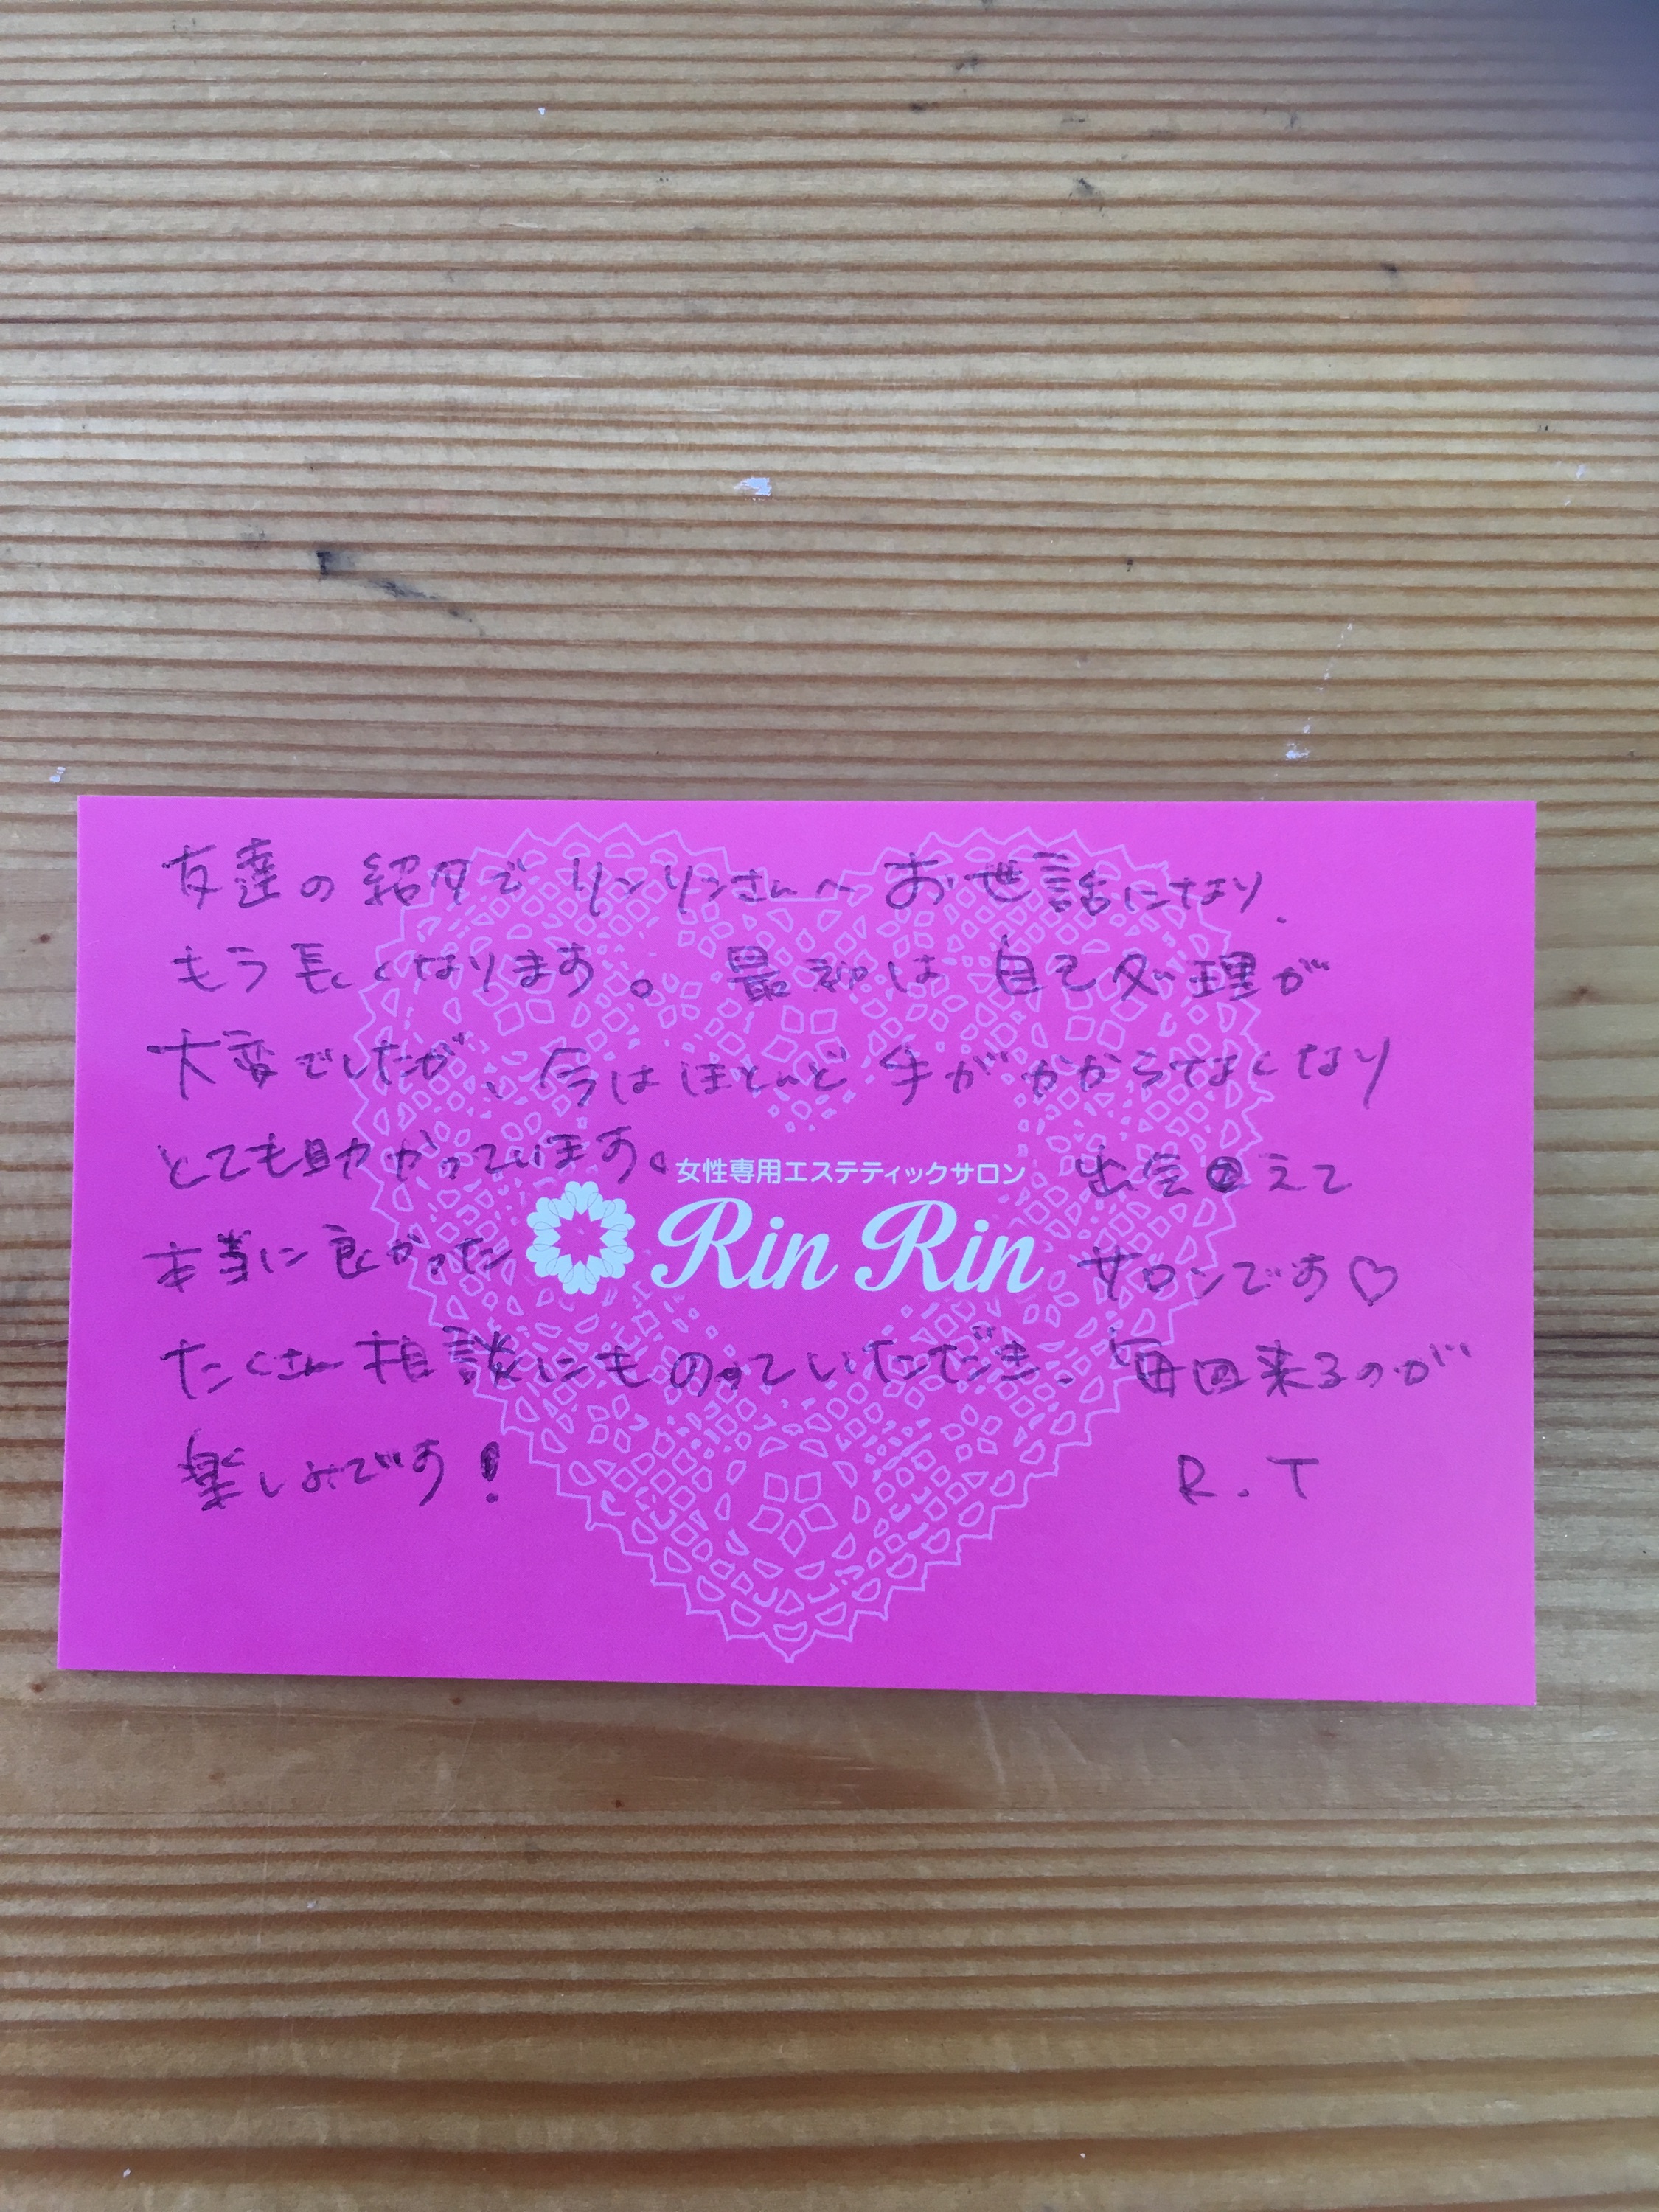 友達の紹介でリンリンさんへお世話になり、
もう長くなります。最初は自己処理が
大変でしたが、今はほとんど手がかからなくなり
とても助かっています。
女性専用エステティックサロン
Rin Rin
出会えて
本当に良かった
サロンです♡
たくさん相談にものっていただき、毎回来るのが
楽しみです！
R.T